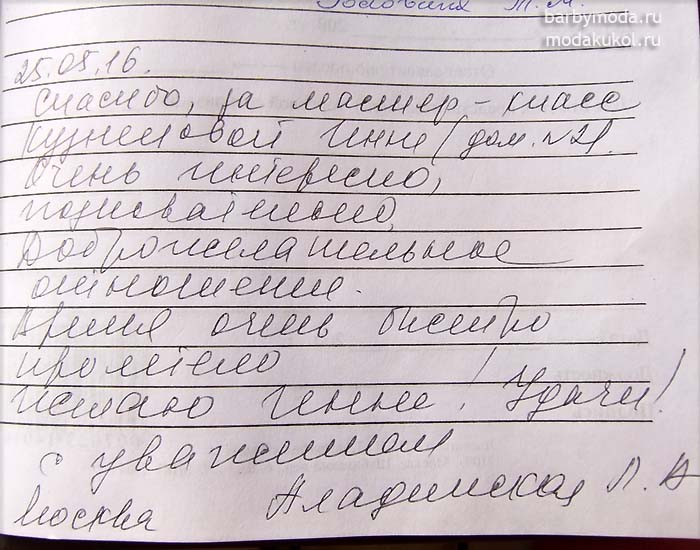 barbymoda.ru
modakukol.ru
25.05.16.
Спасибо, за мастер-класс
Кузнецовой Инне (дом. №21.
Очень интересно,
познавательно,
Доброжелательное
отношение.
Время очень быстро
пролетело
Желаю Инне! Удачи!
С уважением
Москва Владимская Л. В